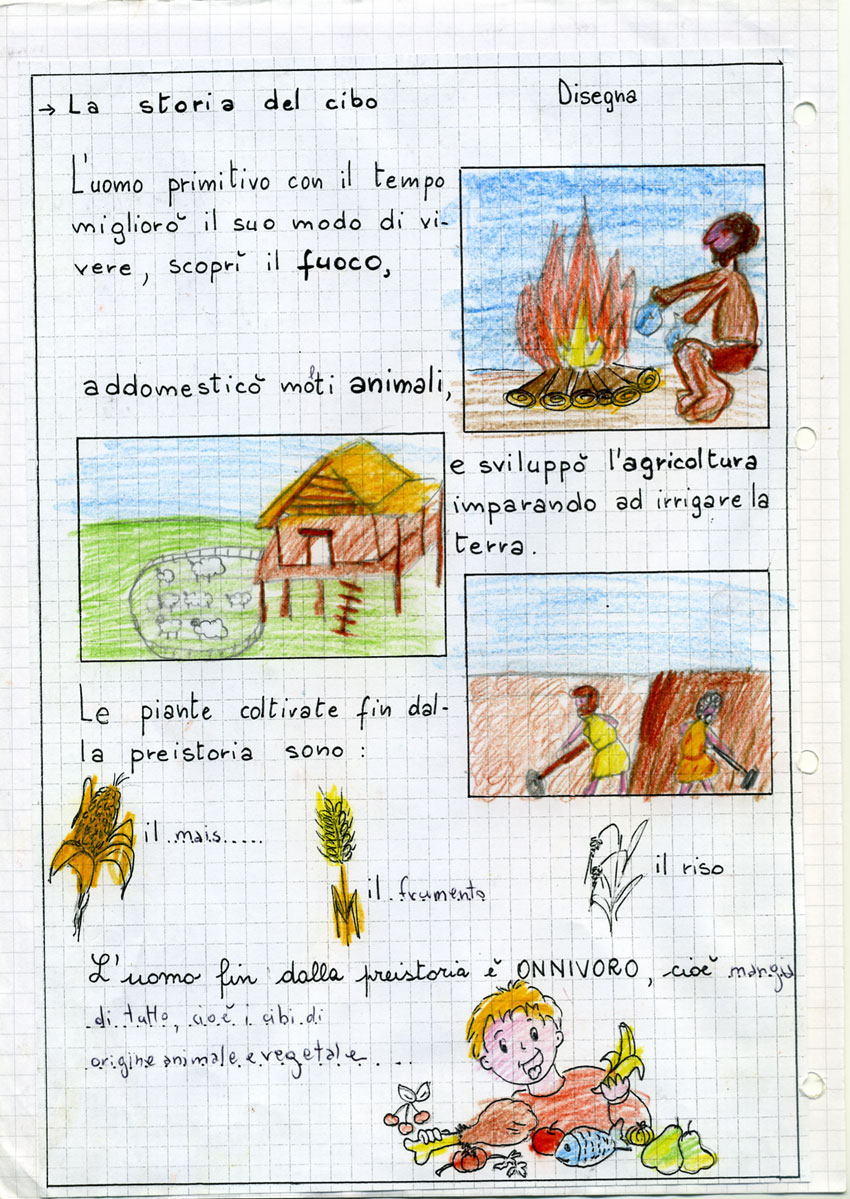 → La storia del cibo
Disegna
L'uomo primitivo con il tempo
migliorò il suo modo di vi-
vere, scoprì il fuoco,
addomesticò molti animali,
e sviluppò l'agricoltura
imparando ad irrigare la
terra.
Le piante coltivate fin dal-
la preistoria sono :
il mais.....
il frumento
il riso
L'uomo fin dalla preistoria è ONNIVORO, cioè mangia
di tutto, cioè i cibi di
origine animale e vegetale....